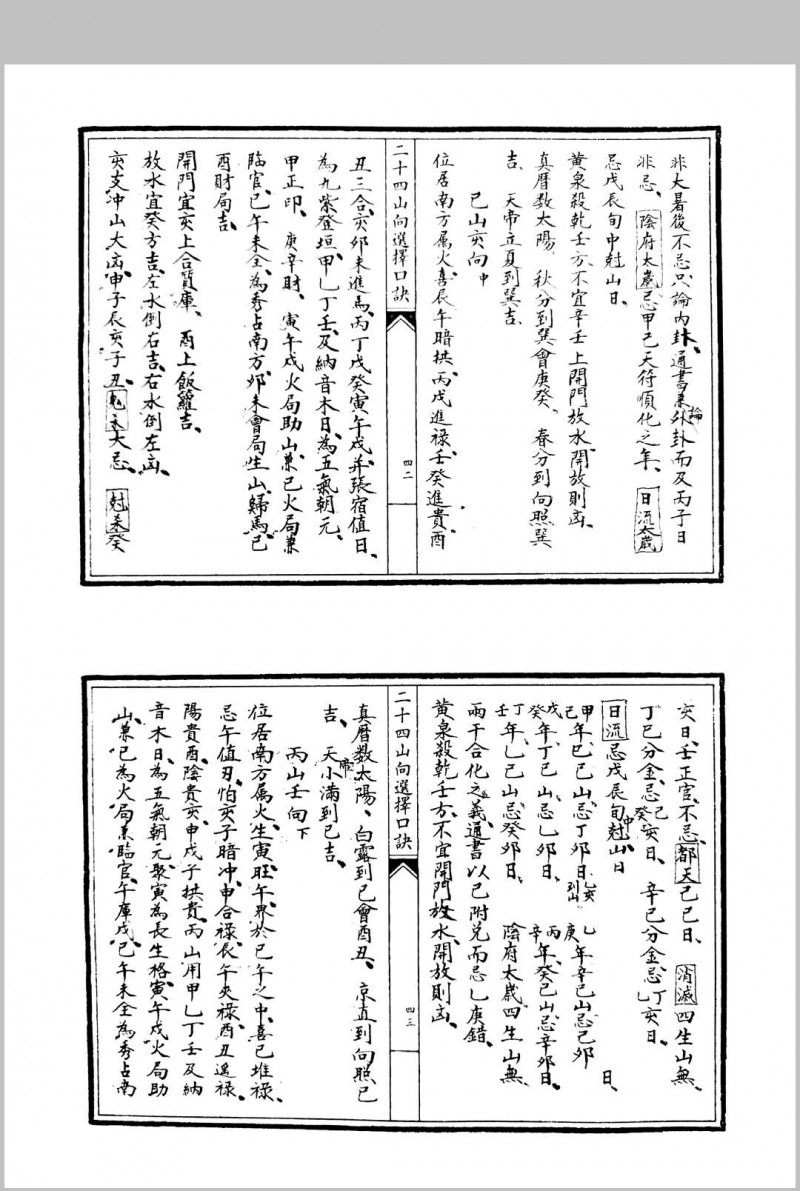 非大暑後不忌只論內卦、通書兼論外卦而及丙子日
非忌、陰府太歲忌甲己天符順化之年、日流太歲
忌戊辰旬中尅山日、
黃泉殺乾壬方、不宜辛壬上開門放水、開放則凶、
真曆数太陽、秋分到巽會庚癸、春分到向照巽
吉、天帝立夏到巽吉、
巳山亥向中
位居南方属火、喜辰午暗拱、丙戊進禄、壬癸進貴、酉
二十四山向選擇口訣
四二
丑三合、亥卯未進馬、丙丁戊癸寅午戌并張宿值日、
為九紫登垣、甲乙丁壬、及納音木日、為五氣朝元、
甲正印、庚辛財、寅午戌火局助山、兼巳火局兼
臨官、巳午未全、為秀占南方、卯未會局生山、歸馬、巳
酉財局吉、
開門宜亥上合質庫、酉上飯籮吉、
放水宜癸方吉、左水倒右吉、右水倒左凶、
亥支冲山大凶、申子辰亥子丑、大忌、尅癸
亥日、壬正官、不忌、都天己巳日、消滅四生山無、
丁巳分金、忌己癸亥日、辛巳分金忌乙丁亥日、
日流忌戊辰旬中尅山日
甲己年巳巳山忌丁卯日、乙亥到山 乙庚年辛巳山忌己卯日、
戊癸年丁巳山忌乙卯日、丙辛年癸巳山忌辛卯日、
丁壬年、乙巳山忌癸卯日、陰府太歲四生山無、
兩干合化之義、通書以巳附兑而忌乙庚錯、
黃泉殺乾壬方、不宜開門放水、開放則凶、
二十四山向選擇口訣
四三
真曆数太陽、白露到巳會酉丑、京直到向照巳
吉、天帝小滿到巳吉、
丙山壬向下
位居南方属火、生寅旺午、界於巳午之中、喜巳堆禄、
忌午值刃、怕亥子暗冲、申合禄、辰午夾禄、酉丑遙禄、
陽貴酉、陰貴亥、申戌子拱貴、丙山用甲乙丁壬及納
音木日、為五氣朝元、聚寅為長生格、寅午戌火局助
山、兼巳為火局兼臨官、午庫戌、巳午未全為秀占南